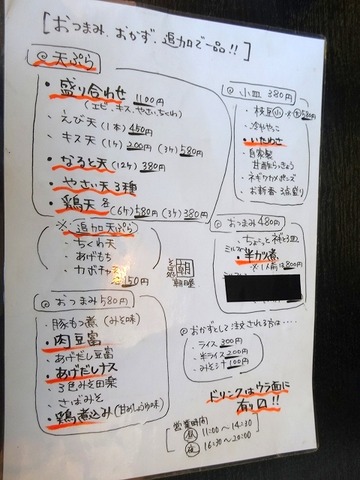 [おつまみ、おかず、追加で一品!!]
◎天ぷら
・盛り合わせ 1100円
(エビ、キス、やさい、ちくわ)
・えび天(1本)450円
・キス天(1ケ)200円(3ケ)580円
・なると天(12ケ)380円
・やさい天3種
・鶏天 各(6ケ)580円(3ケ)380円
※追加天ぷら
・ちくわ天
・あげもち
・カボチャ天
各150円
朝日屋
◎おつまみ580円
・豚もつ煮(みそ味)
・肉豆富
・あげだし豆富
・あげだしナス
・3色みそ田楽
・さばみそ
・鶏煮込み(甘めしょうゆ味)
◎小皿 380円
・枝豆(小)・(大)580円
・冷ややっこ
・いためさ
・自家製
甘酢らっきょう
・ネギワカメポンズ
・お新香3点盛り
◎おつまみ480円
・ちょこっと
・半カツ煮
※1人前は800円
◎おかずとして注文される方は・・・・
・ライス 300円
・半ライス 200円
・みそ汁 100円
ドリンクはウラ面に
有り□!!
営業時間
(昼)11:00〜14:30
(夜)16:30〜20:00